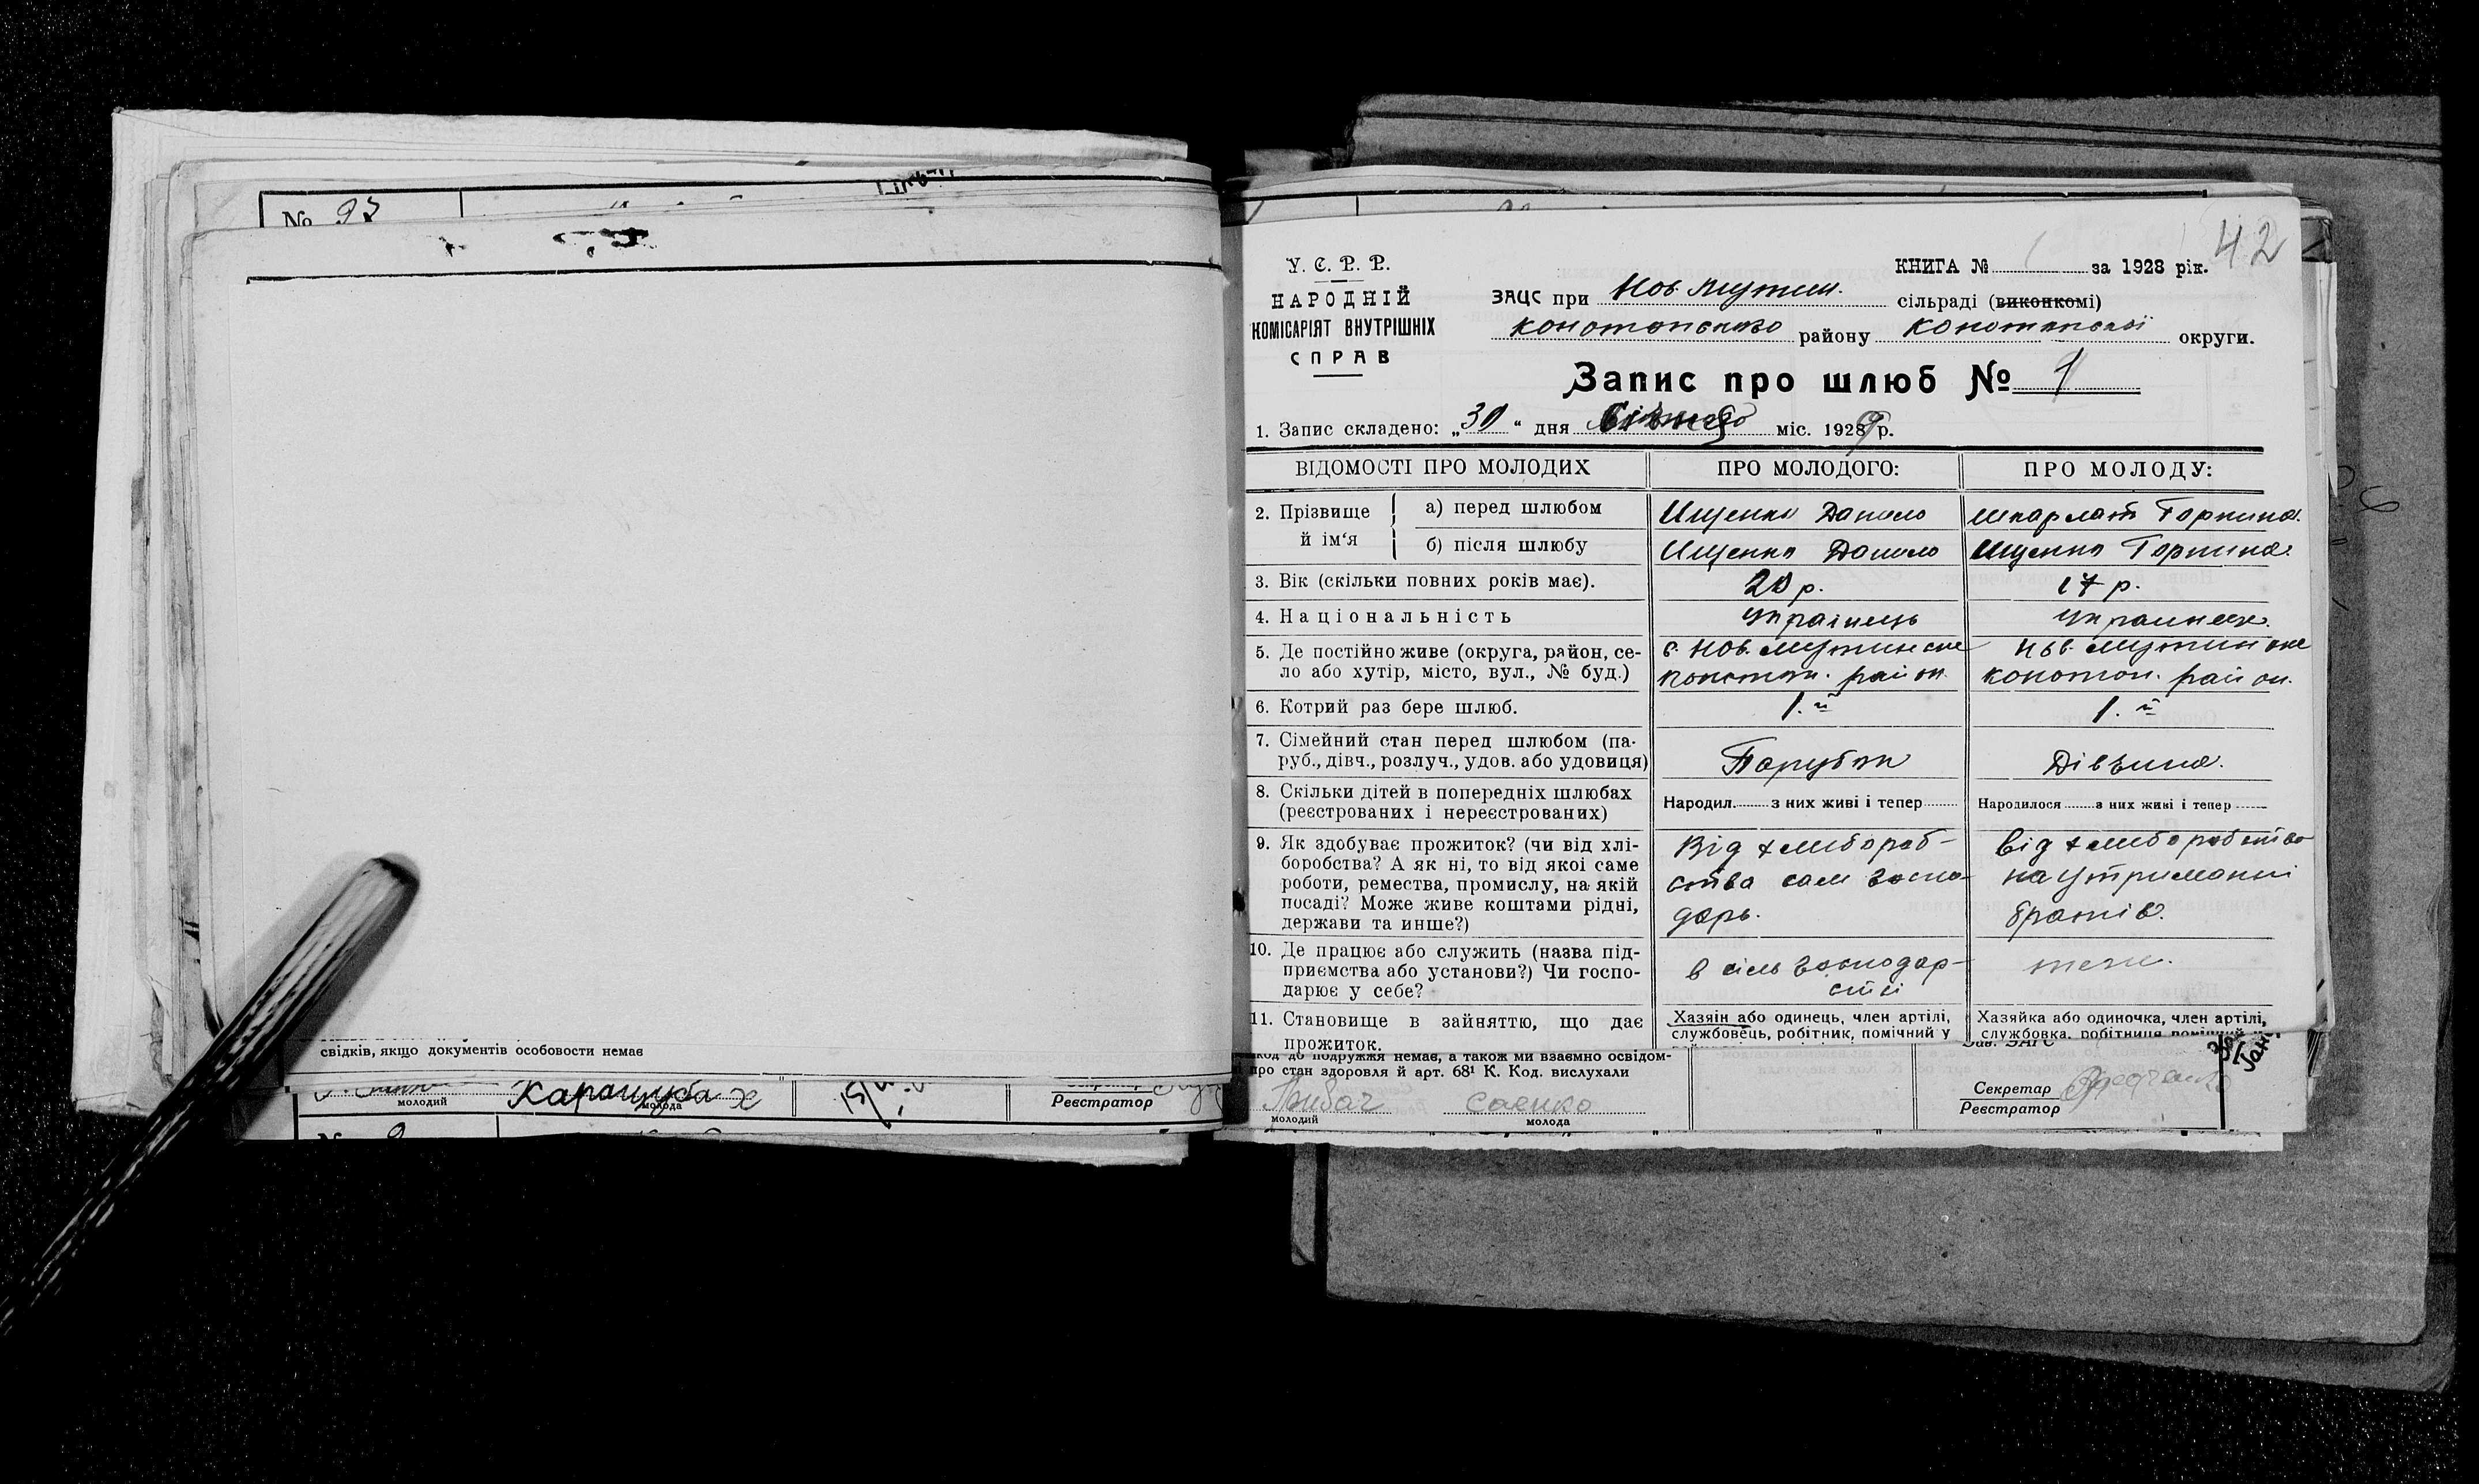 № 93
свідків, якщо документів особовости немає
молодий
Каращуба х
молода
Секретар
Реєстратор
42
У. С. Р. Р.
НАРОДНІЙ
КОМІСАРІЯТ ВНУТРІШНІХ
СПРАВ
КНИГА № 1 за 1928 рік.
ЗАЦС при Нов Мутин. сільраді (виконкомі)
Конотопського району Конотопської округи.
Запис про шлюб № 1
1. Запис складено: „30" дня січня міс. 1929 р.
ВІДОМОСТІ ПРО МОЛОДИХ
ПРО МОЛОДОГО:
ПРО МОЛОДУ:
2. Прізвище й ім'я
а) перед шлюбом
Ищенко Данило
Шкарлат Горпина.
б) після шлюбу
Ищенко Данило
Ищенко Горпина.
3. Вік (скільки повних років має).
20 р.
17 р.
4. Національність
Українець
5. Де постійно живе (округа, район, се-
ло або хутір, місто, вул., № буд.)
с. Нов. Мутинске
конотоп. район.
Нов. Мутинске
конотоп. район.
6. Котрий раз бере шлюб.
1.й
1.й
7. Сімейний стан перед шлюбом (па-
руб., дівч., розлуч., удов. або удовиця)
Парубок
Дівчина.
8. Скільки дітей в попередніх шлюбах
(реєстрованих і нереєстрованих)
Народил. з них живі і тепер
Народилося з них живі і тепер
9. Як здобуває прожиток? (чи від хлі-
боробства? А як ні, то від якої саме
роботи, ремества, промислу, на якій
посаді? Може живе коштами рідні,
держави та инше?)
Від хлибороб-
ства сам госпо-
дарь.
від хлиборобства
на утриманні
братів.
10. Де працює або служить (назва під-
приємства або установи?) Чи госпо-
дарює у себе?
в сіль господар-
стві
теж.
11. Становище в зайняттю, що дає
прожиток.
Хазяїн або одинець, член артілі,
службовець, робітник, помічний у
Хазяйка або одиночка, член артілі,
службовка, робітниця
код до подружжя немає, а також ми взаємно освідом-
про стан здоровля й арт. 68¹ К. Код. вислухали
Саенко
молодий
молода
Зав. ЗАГС
Секретар
Реєстратор